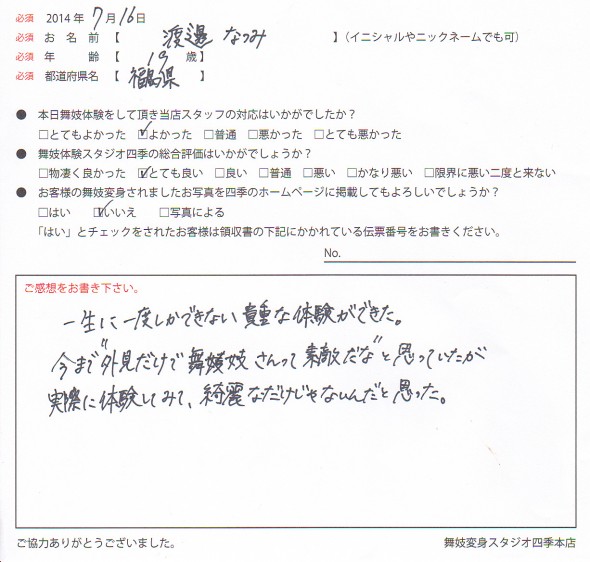 必須 2014年 7月16日
必須 お名前【 渡邊 なつみ 】(イニシャルやニックネームでも可)
必須 年齢【 19 歳】
必須 都道府県名【 福島県 】
● 本日舞妓体験をして頂き当店スタッフの対応はいかがでしたか?
□とてもよかった ☑よかった □普通 □悪かった □とても悪かった
● 舞妓体験スタジオ四季の総合評価はいかがでしょうか?
□物凄く良かった ☑とても良い □良い □普通 □悪い □かなり悪い □限界に悪い二度と来ない
● お客様の舞妓変身されましたお写真を四季のホームページに掲載してもよろしいでしょうか?
□はい ☑いいえ □写真による
「はい」とチェックをされたお客様は領収書の下記にかかれている伝票番号をお書きください。
No.
ご感想をお書き下さい。
一生に一度しかできない貴重な体験ができた。
今まで"外見だけで舞妓さんって素敵だな"と思っていたが
実際に体験してみて、綺麗なだけじゃないんだと思った。
ご協力ありがとうございました。 舞妓変身スタジオ四季本店